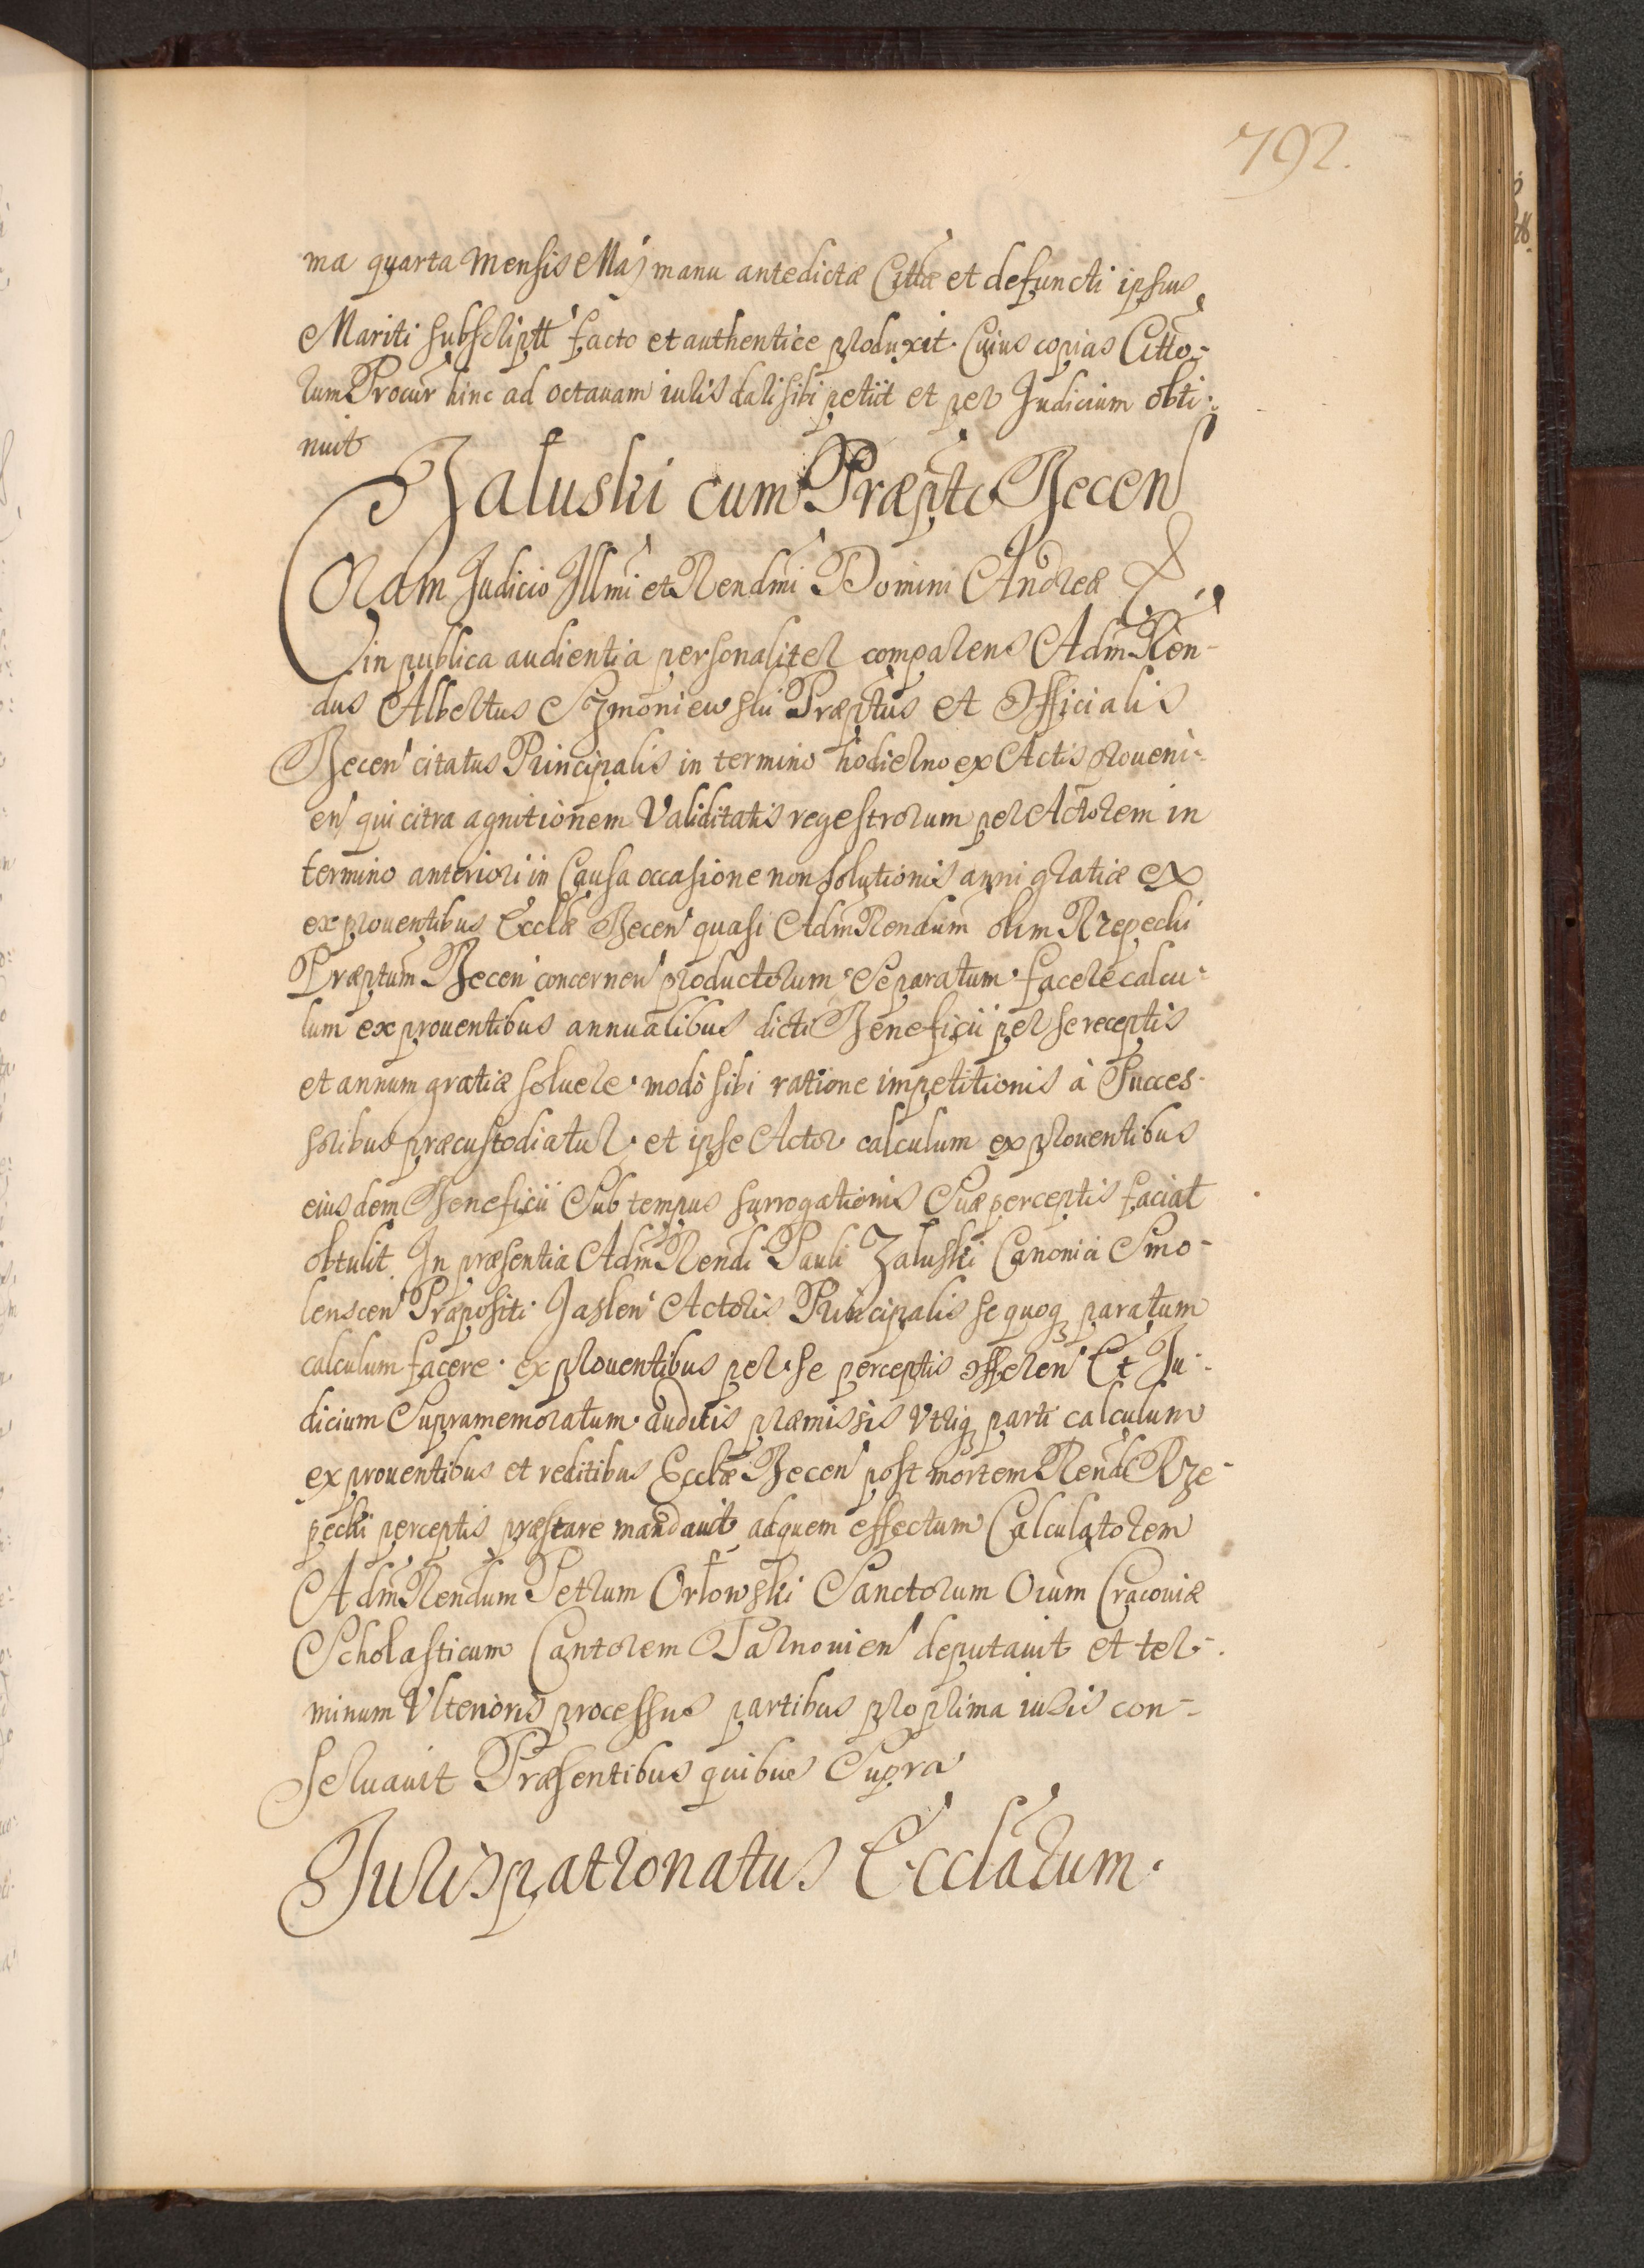 792.
ma quarta Mensis Maj manu antedictæ Cittæ et defuncti ipsius
Mariti subscriptt facto et authentice produxit. Cuius copias Citto-
rum Procur hinc ad octauam iuris dari sibi petiit et per Judicium obti-
nuit
Załuski cum Præpto Becen
Coram Judicio Illmi et Rendmi Domini Andreæ &
in publica audientia personaliter comparens Adm Ren-
dus Albertus Szmoniewski Præptus et Officialis
Becen citatus Principalis in termino hodierno ex Actis proueni-
en qui citra agnitionem Validitatis regestrorum per Actorem in
termino anteriori in Causa occasione non solutionis anni gratiæ ex
ex prouentibus Ecclæ Becen quasi Adm Rendum olim Rzepecki
Præptum Becen concernen productorum Separatum facere calcu-
lum ex prouentibus annualibus dicti Beneficii per se receptis
et annum gratiæ soluere modò sibi ratione impetitionis à Succes-
soribus præcustodiatur et ipse Actor calculum ex prouentibus
eiusdem Beneficii Sub tempus surrogationis Suæ perceptis faciat
obtulit In præsentia Adm Rendi Pauli Załuski Canonici Smo-
lenscen Præpositi Jaslen Actoris Principalis se quoq paratum
calculum facere ex prouentibus per se perceptis offeren Et Ju-
dicium Supramemoratum auditis præmissis Vtriq parti calculum
ex prouentibus et reditibus Ecclæ Becen post mortem Rendi Rze-
pecki perceptis præstare mandauit ad quem effectum Calculatorem
Adm Rendum Petrum Orłowski Sanctorum Oium Cracouiæ
Scholasticum Cantorem Tarnouien deputauit et ter-
minum Vlterioris processus partibus pro prima iuris con-
seruauit Præsentibus quibus Supra
Juris patronatus Ecclarum.